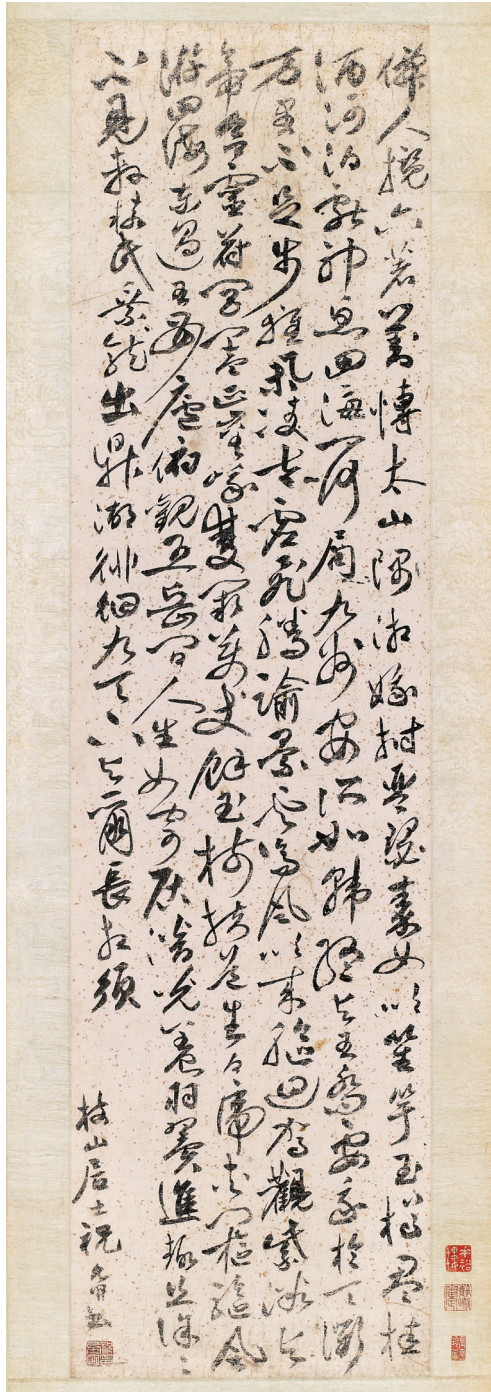 僊人攬六著對博太山隅湘娥拊琴瑟秦女吹笙竽玉樽盈桂
酒河伯獻神魚四海一何局九州安所如韓終與王喬要我於天衢
万里不足步輕舉凌太虛飛騰踰景雲高風吹我軀迴駕觀紫微與
帝合靈符閶闔正嵯峨雙闕萬丈餘玉樹扶道生白虎夾門樞驅風
游四海東過王母廬俯觀五岳間人生如寄居潛光養羽翼進趣且徐〻
不見軒轅氏乘龍出鼎湖徘徊九天上與爾長相須
枝山居士祝允明書